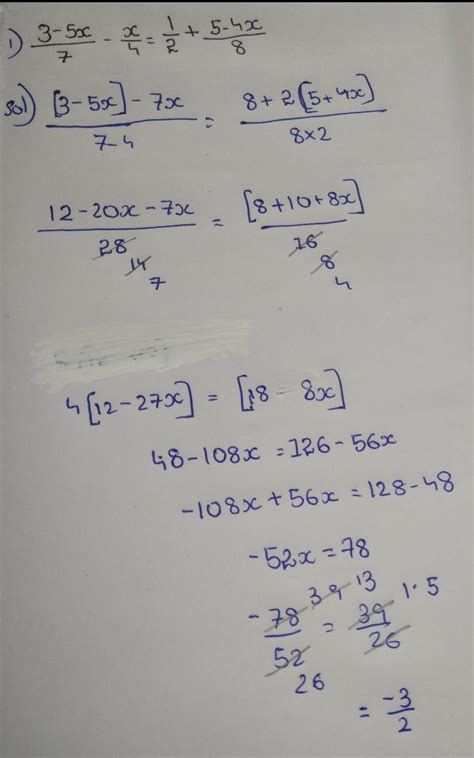 1) (3-5x)/7 - x/4 = 1/2 + (5-4x)/8
Sol) ([3-5x]-7x)/(7-4) = (8+2(5+4x))/(8×2)
(12-20x-7x)/28 = [8+10+8x]/16
14 8
7 4
4[12-27x] = [18 - 8x]
48-108x = 126-56x
-108x+56x = 128-48
-52x = 78
39 13 1.5
-78/52 = 39/26
26
= -3/2